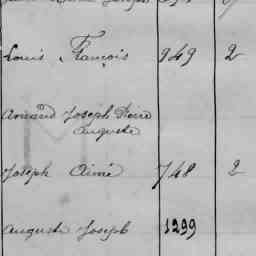 Louis François 949 2
Armand Joseph Pierre
Auguste
Joseph Aimé 748 2
Auguste Joseph 1299